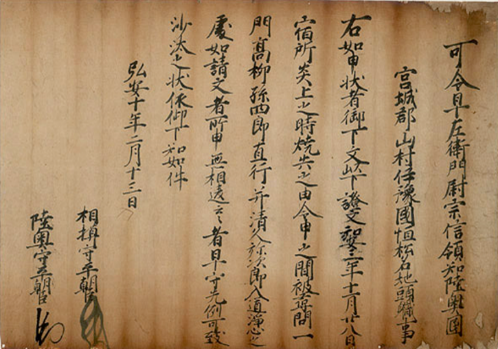 可令早左衛門尉宗信領知陸奥國
宮城郡山村伊豫國恒松名地頭職事
右如申状者御下文以下證文弘安三年十一月廿八日
宿所炎上之時焼失之由令申之間被尋問一
門高柳孫四郎直行并清久弥次郎入道浄心之
處如請文者所申無相違云々者早守先例可致
沙汰之状依仰下知如件
弘安十年二月十三日
相模守平朝臣
陸奥守平朝臣